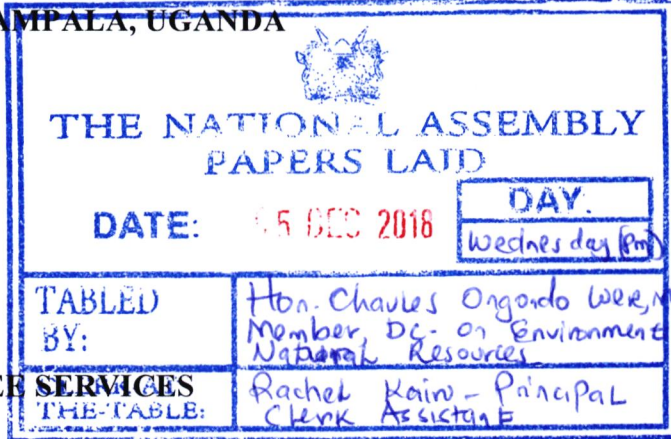 AMPALA, UGANDA
THE NATIONAL ASSEMBLY
PAPERS LAID
DATE: 5 DEC 2018
DAY.
Wednesday (pm)
TABLED
BY:
Hon. Charles Ongondo Were, M
Member, DC- on Environment
Natural Resources
E SERVICES
THE-TABLE:
Rachel Kairu - Principal
Clerk Assistant